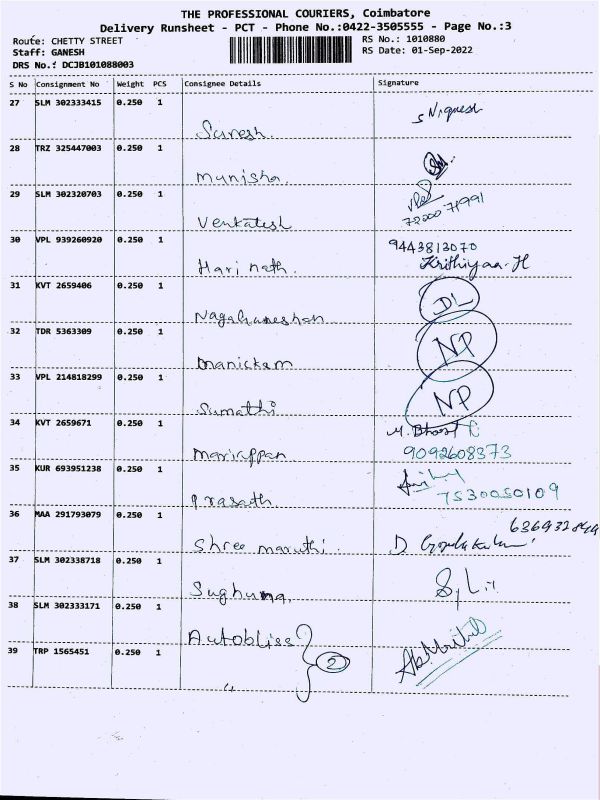 THE PROFESSIONAL COURIERS, Coimbatore
Delivery Runsheet - PCT - Phone No.:0422-3505555 - Page No.:3
Route: CHETTY STREET
RS No.: 1010880
Staff: GANESH
RS Date: 01-Sep-2022
DRS No.: DCJB101088003
S No Consignment No Weight PCS Consignee Details Signature
27 SLM 302333415 0.250 1
Suresh. S Vignesh
28 TRZ 325447003 0.250 1
Munisha.
29 SLM 302320703 0.250 1
Venkatesh 72000 71991
30 VPL 939260920 0.250 1 9443813070
Hari nath. Krithiyaa.H
31 KVT 2659406 0.250 1
Nagahaneshan DL
32 TDR 5363309 0.250 1
Manickam NP
33 VPL 214818299 0.250 1
Sumathi NP
34 KVT 2659671 0.250 1
Mariappan 9092608373
35 KUR 693951238 0.250 1
Prasath 7530050109
36 MAA 291793079 0.250 1
Shree maruthi. D
37 SLM 302338718 0.250 1
Sughuna,
38 SLM 302333171 0.250 1
Autobliss 2
39 TRP 1565451 0.250 1
"